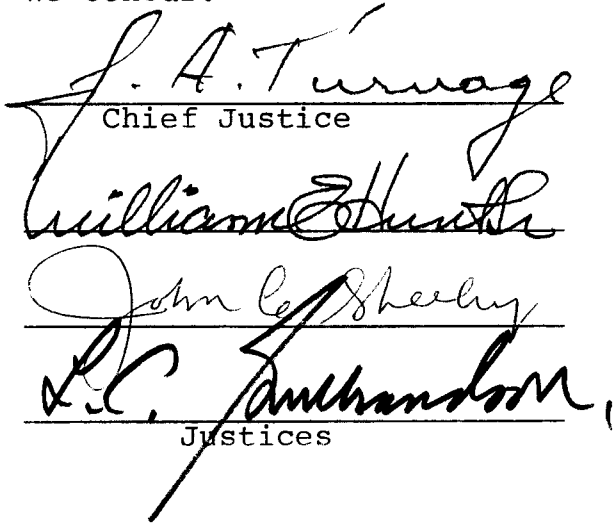 We concur:
J. A. Turnage
Chief Justice
William E Hunt Sr
John C. Sheehy
L.C. Gulbrandson,
Justices